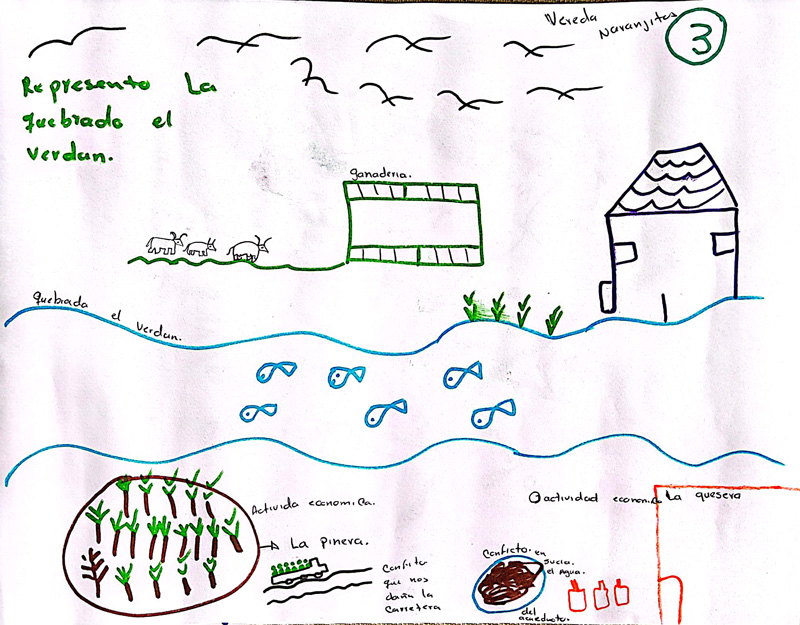 Vereda Naranjitos
3
Represento La
quebrada el
verdun.
ganaderia.
quebrada el verdun.
Activida economica.
La pinera.
Conflito
que nos
daña la
carretera
Conflicto. en
sucia.
el Agua.
del
acueducto.
actividad economica La quesera